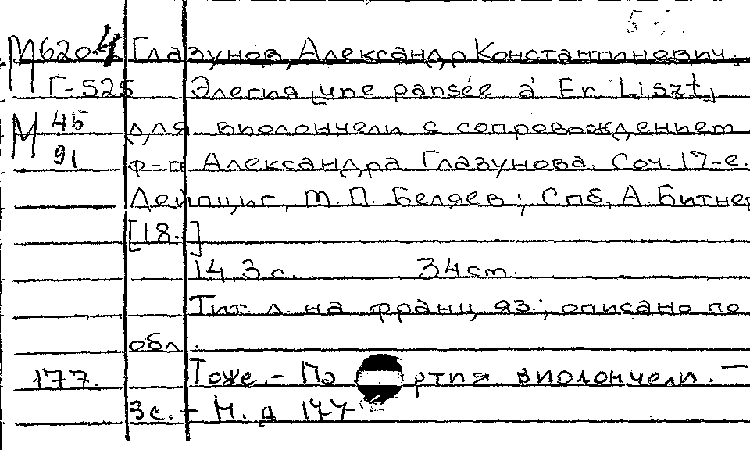 М620.4 Глазунов, Александр Константинович.
Г-525 Элегия [une pansée à Fr. Liszt]
М 45 для виолончели с сопровождением
91 ф-п Александра Глазунова. Соч. 17-е.
Лейпциг, М. П. Беляев; Спб, А. Битнер
[18. ]
14, 3 с. 34 cm.
Тит. л. на франц. яз; описано по
обл.
177. Тоже. - По ртия виолончели. —
3с. - Н. д 177